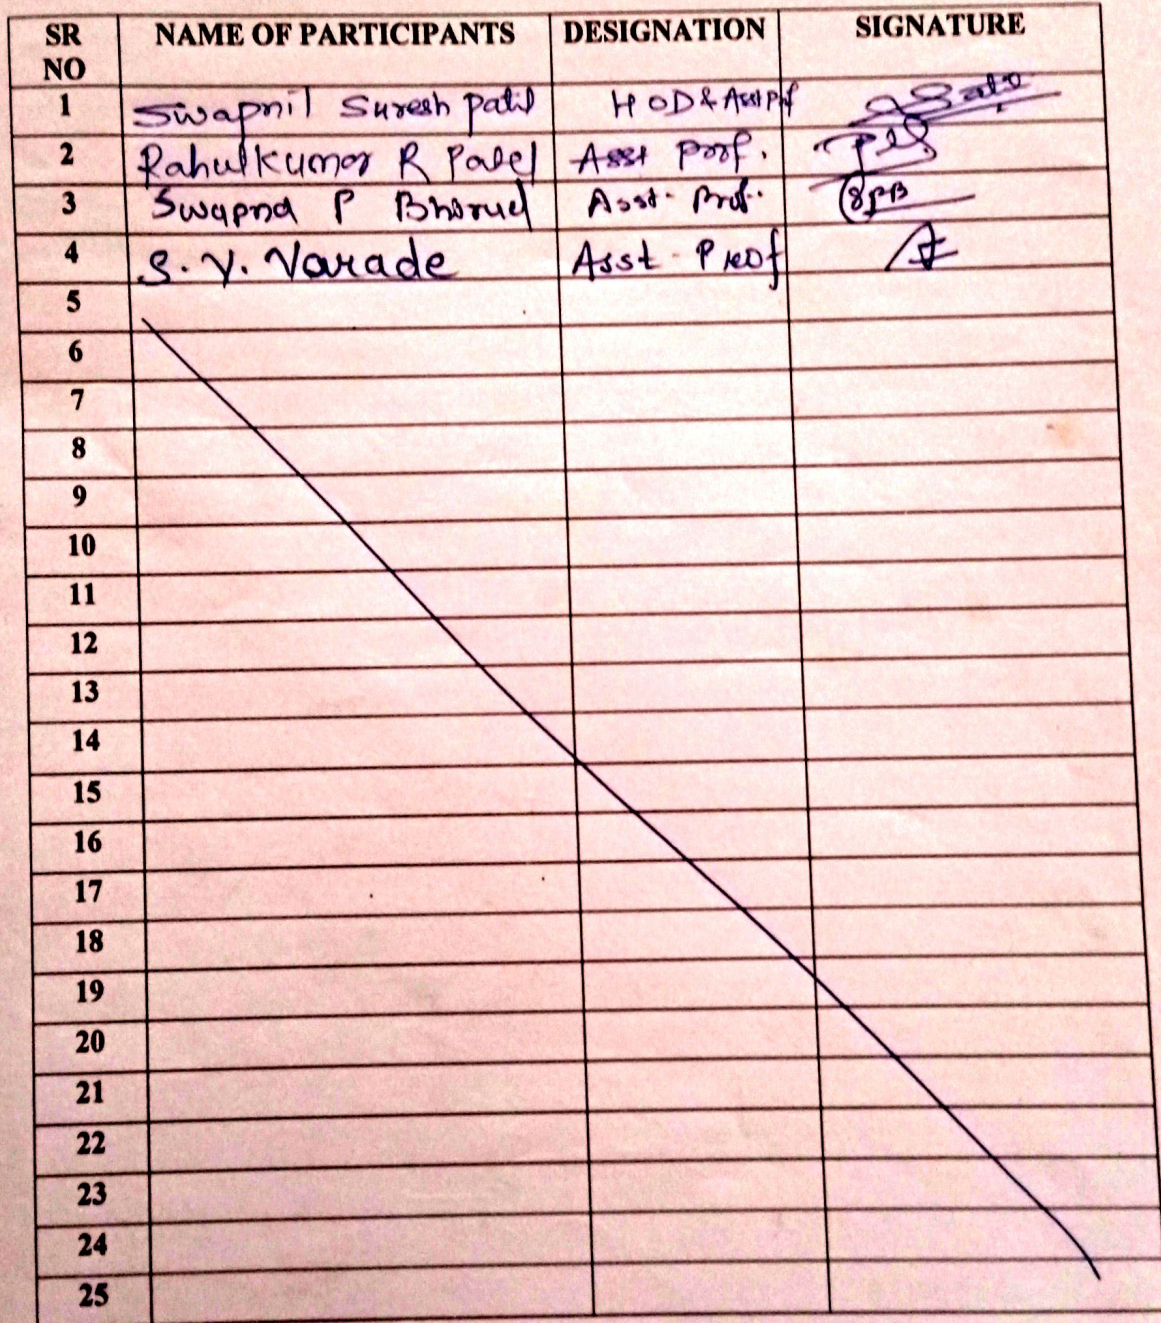 SR NO NAME OF PARTICIPANTS DESIGNATION SIGNATURE
1 Swapnil Suresh Patil HOD & Asst Prof
2 Rahulkumar R Patel Asst Prof.
3 Swapna P Bhorud Asst. Prof.. SPB
4 S. Y. Varade Asst Prof
5
6
7
8
9
10
11
12
13
14
15
16
17
18
19
20
21
22
23
24
25